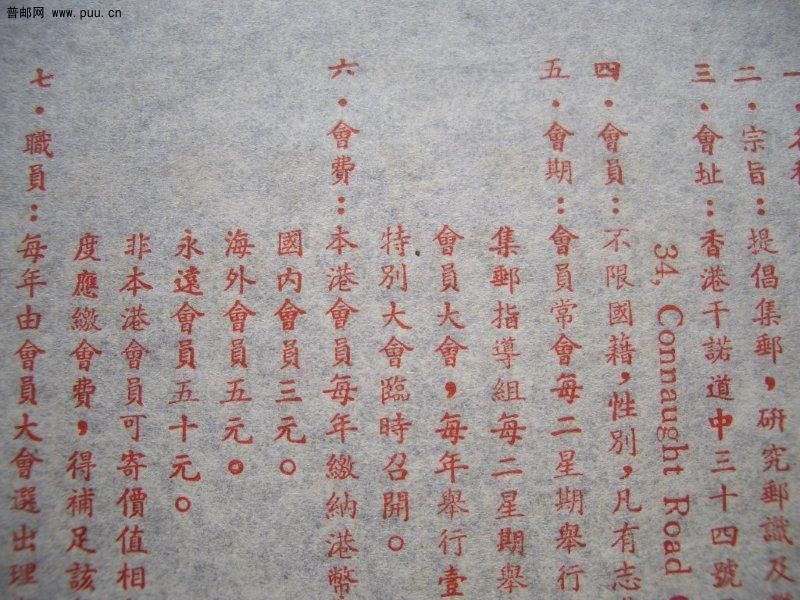 普邮网 www.puu.cn
一・名稱
二・宗旨：提倡集郵，研究郵識及聯
三・會址：香港干諾道中三十四號
34, Connaught Road
四・會員：不限國藉，性別，凡有志
五・會期：會員常會每二星期舉行
集郵指導組每二星期舉
會員大會，每年舉行壹
特別大會臨時召開。
六・會費：本港會員每年繳納港幣
國內會員三元。
海外會員五元。
永遠會員五十元。
非本港會員可寄價值相
度應繳會費，得補足該
七・職員：每年由會員大會選出理